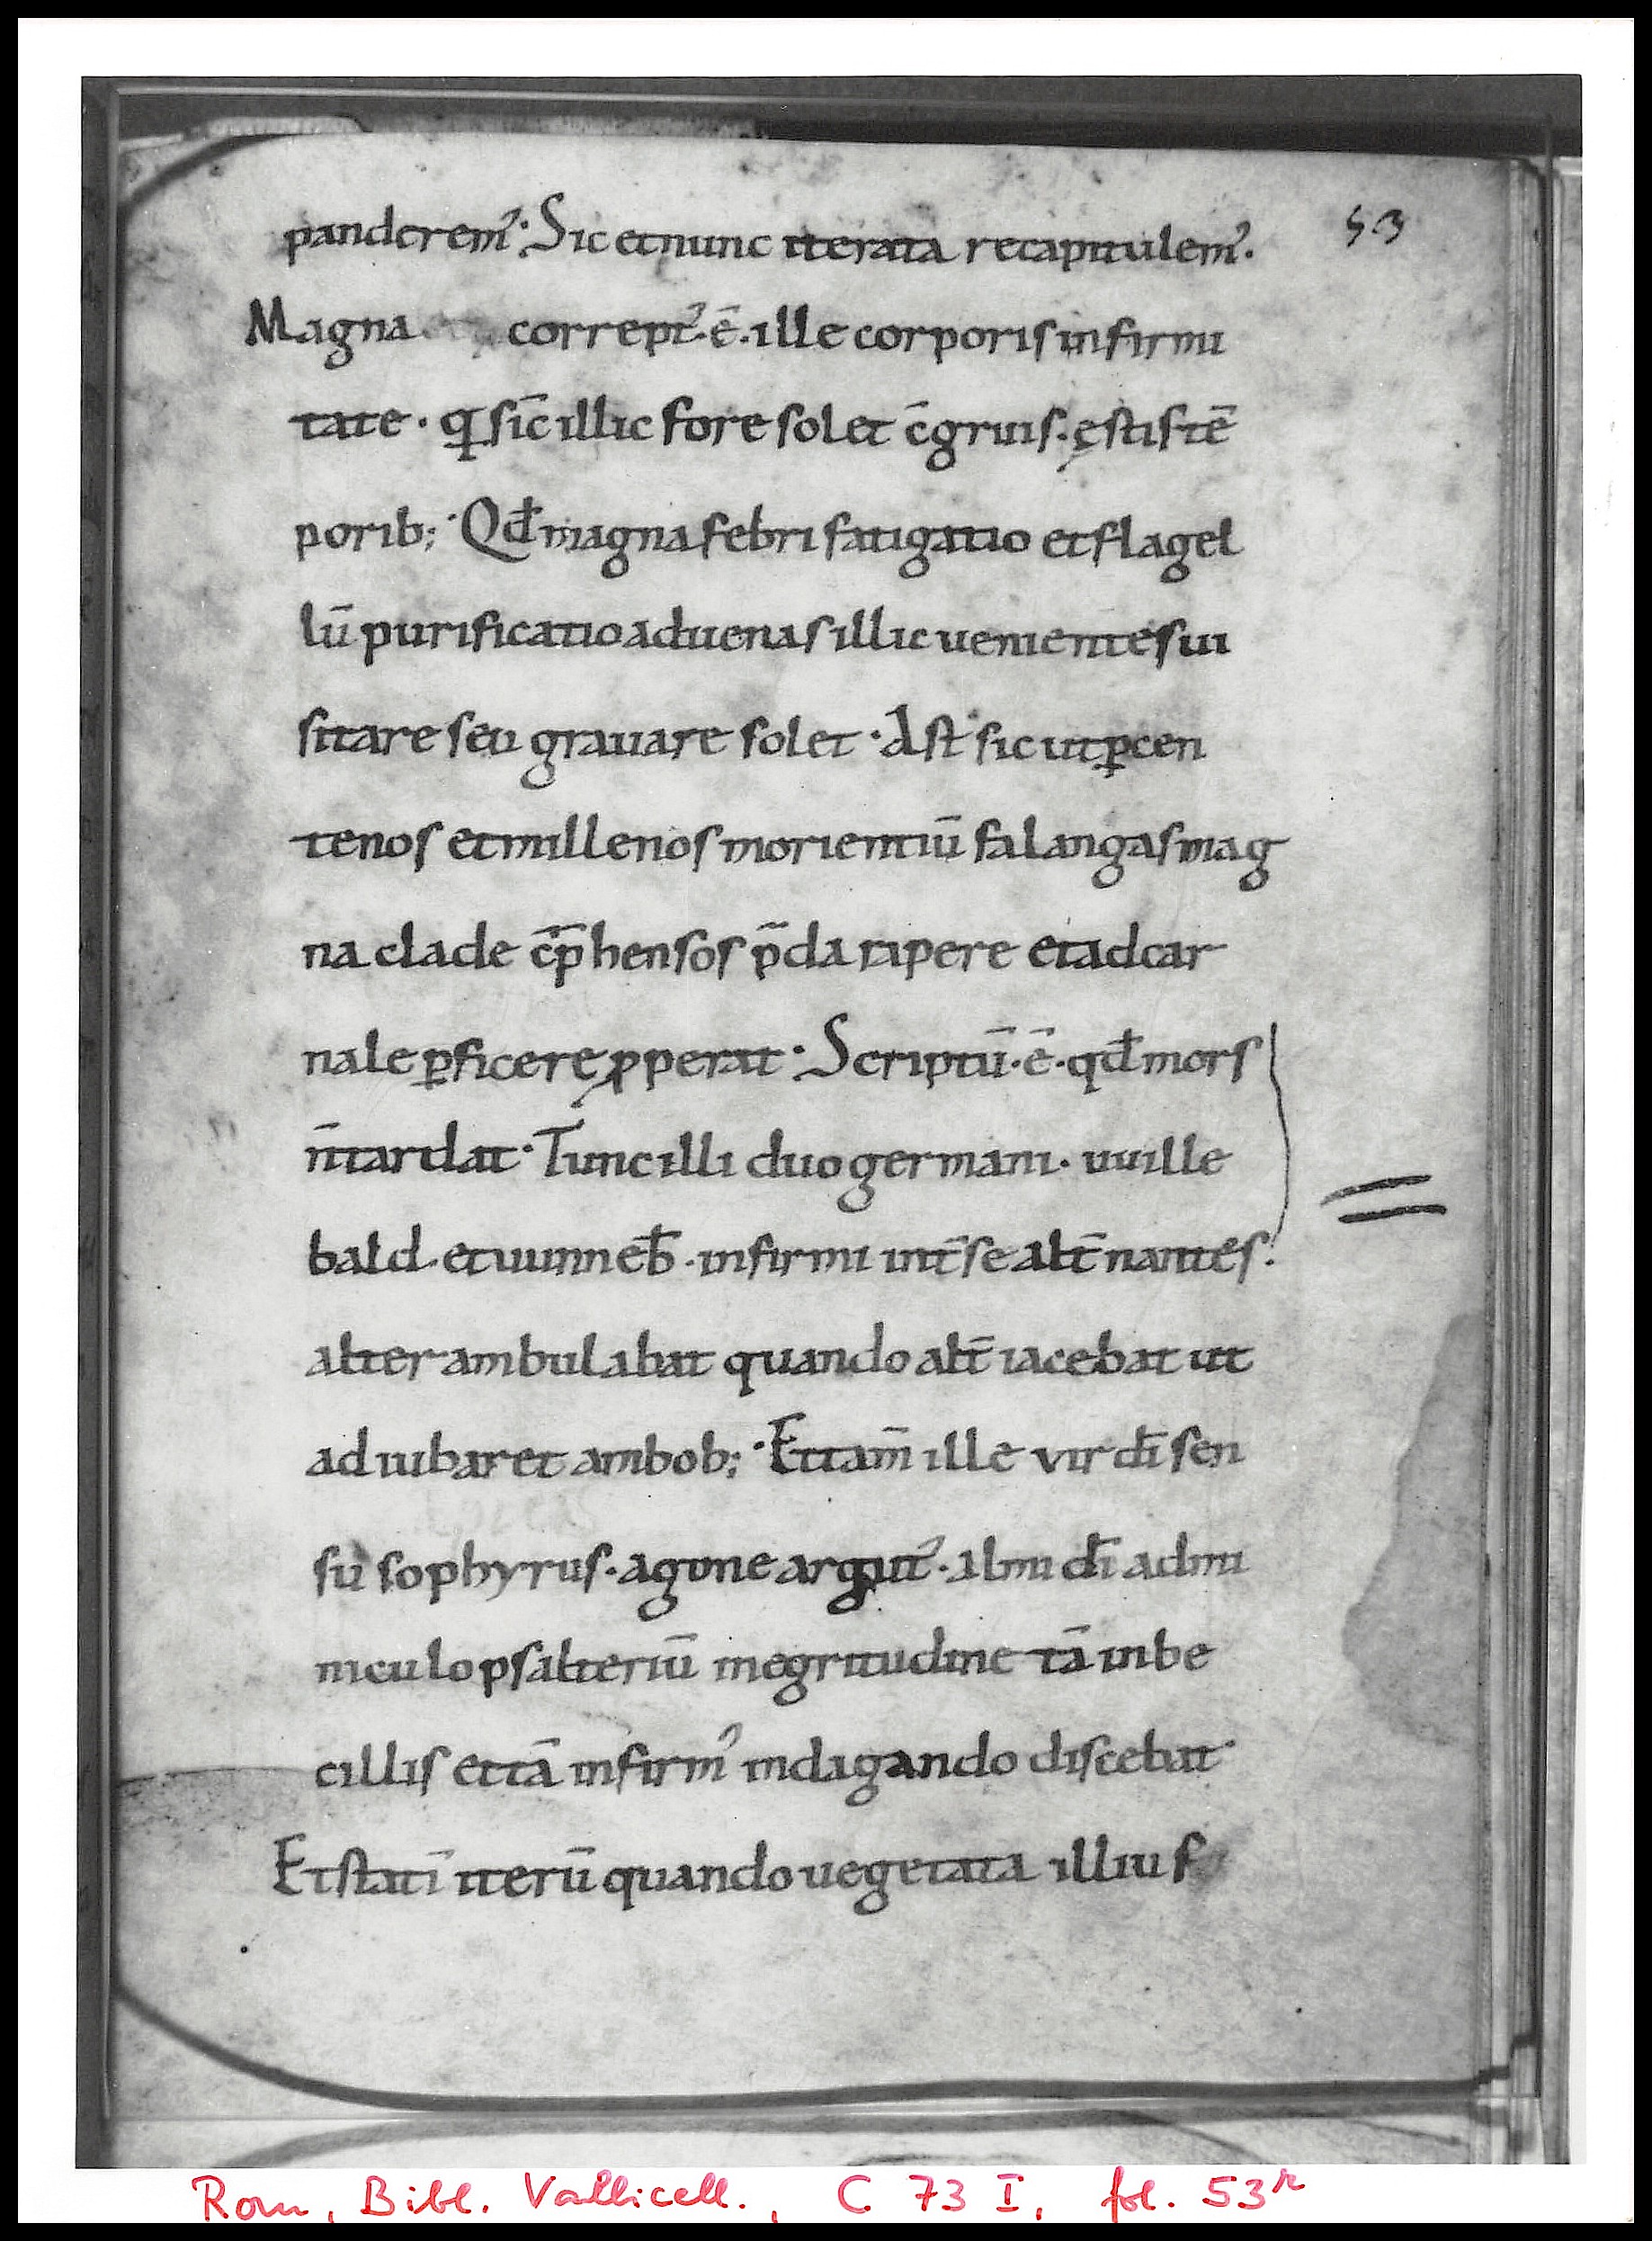 panderem᾿· Sic et nunc iterata recapitulem᾿·
53
Magna corrept᾿· ē · ille corporis infirmi
tate · q sīc illic fore solet c̄gruis · ęstis tē
porib; · Qđ magna febri fatigatio et flagel
lū purificatio aduenas illic uenientes ui
sitare seu grauare solet · Ast sic ut ꝑcen
tenos et millenos morientiū falangas mag
na clade c̄p̄hensos p̄da rapere et ad car
nale ꝑficere ꝓperat · Scriptū · ē · qđ mors
n̄ tardat · Tunc illi duo germani · uuille
bald · et uunneƀ · infirmi int̄ se alt̄nantes ·
alter ambulabat quando alt̄ iacebat ut
adiubaret ambob; · Et tam̄ ille vir dī sen
su sophyrus · agone arguit᾿ · almi dī admi
niculo psalteriū in egritudine tā inbe
cillis et tā infirm᾿ indagando discebat ·
Et statī iterū quando uegetata illius
Rom, Bibl. Vallicell., C 73 I, fol. 53r